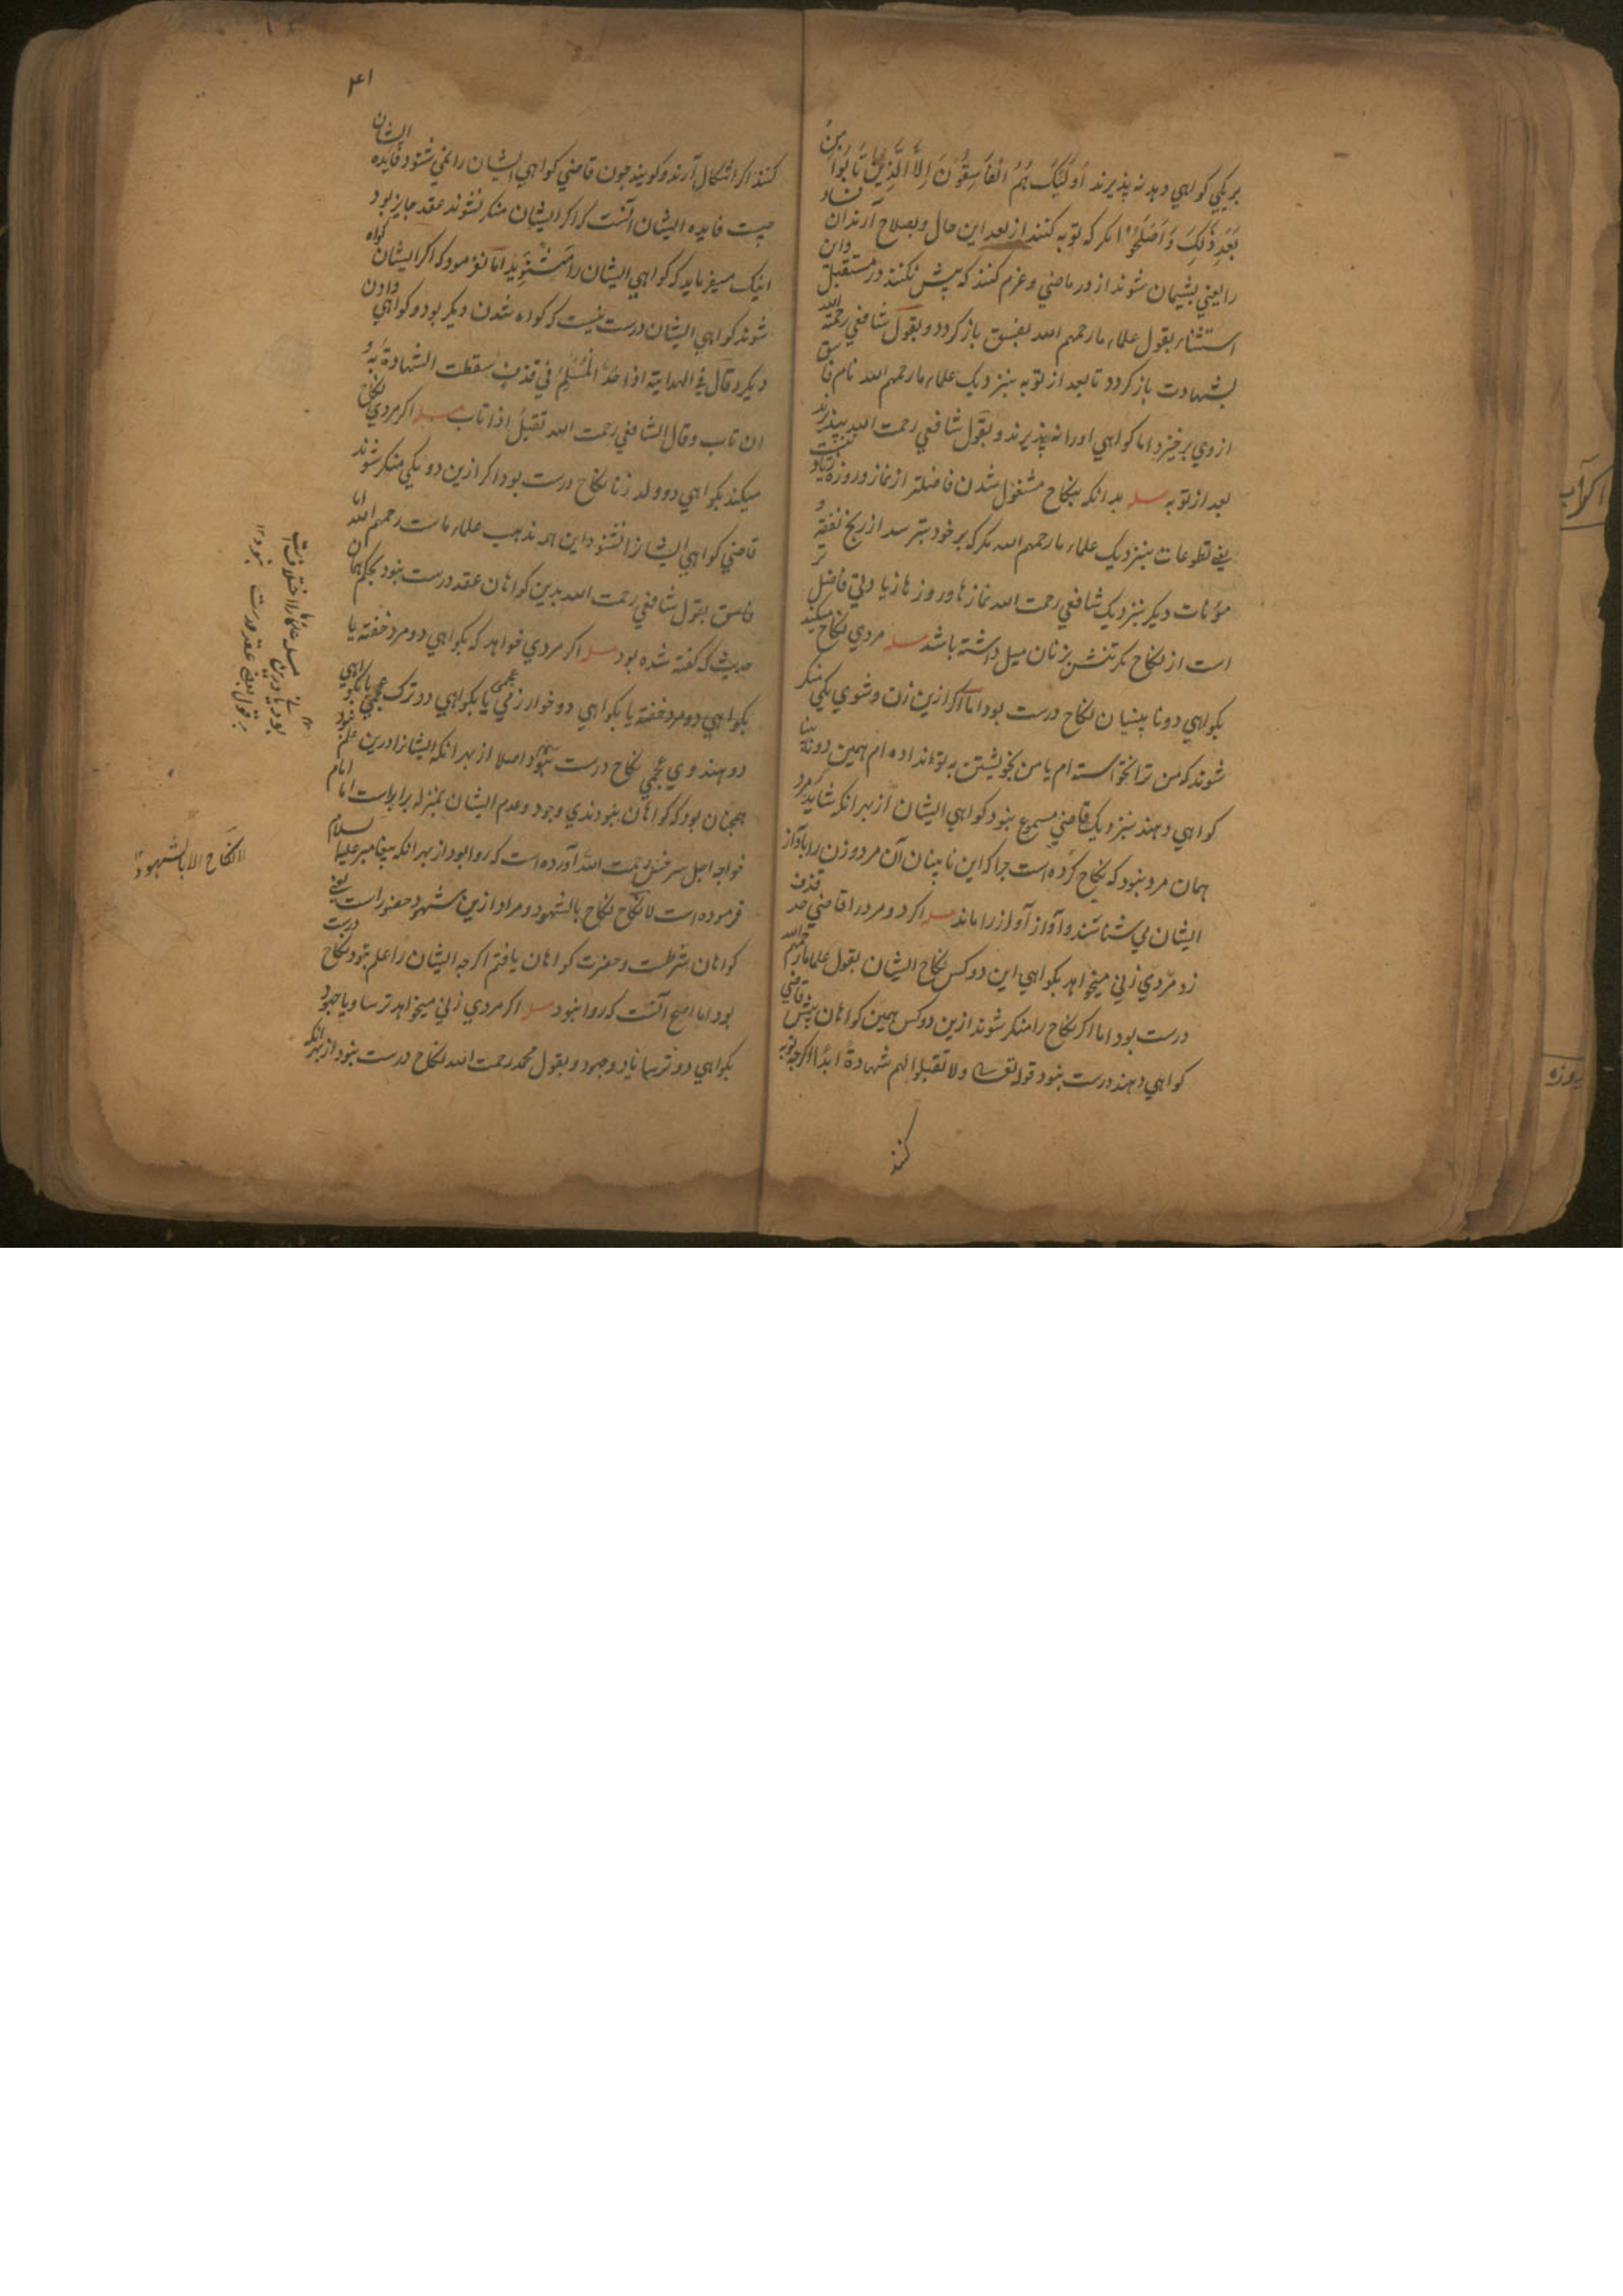 بریکی کواهي دهد نه پذیرند اُولَئِکَ هُمُ الْفَاسِقُوْنَ اِلَّا الَّذِیْنَ تَابُوْا مِنْ
بَعْدِ ذٰلِکَ وَاَصْلَحُوْا مکر که توبه کنند از بعد این حال و بصلاح آرند آن فساد
را یعني پشیمان شوند از در ماضي و عزم کنند که پیش نکنند در مستقبل و این
استثناء بقول علماء ما رحمهم الله بفسق باز کردد و بقول شافعي رحمة الله
بشهادت باز کردد تا بعد از توبه بنزدیک علماء ما رحمهم الله نام فاسق
از وي برخیزد اما کواهي او را نه پذیرند و بقول شافعي رحمت الله بپذیرند
بعد از توبه مسله بدانکه بنکاح مشغول شدن فاضلتر از نماز و روزه زیاد
یعني تطوعات بنزدیک علماء ما رحمهم الله مکر که بر خود بترسد از رنج نفقه و
مؤنات دیکر بنزدیک شافعي رحمت الله نمازها و روزها زیادتي فاضل تر
است از نکاح مکر تنش بزنان میل داشته باشد مسله مردي نکاح میکند
بکواهي دو نابینایان نکاح درست بود اما اکر ازین زن و شوي یکي منکر
شوند که من ترا نخواسته ام یا من بخویشتن به تو نداده ام همین دو نابینا
کواهي دهند بنزدیک قاضي مسموع نبود کواهي ایشان از بهر انکه شاید مرد
همان مرد نبود که نکاح کرده است چرا که این نابینان آن مرد و زن را بآواز
ایشان مي شناسند و آواز آواز را ماند مسله اکر دو مرد را قاضي حد قذف
زد مردي زني میخواهد بکواهي این دو کس نکاح ایشان بقول علماء ما رحمهم الله
درست بود اما اکر نکاح را منکر شوند ازین دو کس همین کواهان پیش قاضي
کواهي دهند درست نبود قوله تعالی ولا تقبلوا لهم شهادة ابدًا اکرچه توبه
کنند
۴۱
کنند اکر اشکال آرند و کویند چون قاضي کواهي ایشان را نمي شنود فایده ایشان
چیست فایده ایشان آنست که اکر ایشان منکر نشوند عقد جایز بود
اینک میفرماید که کواهي ایشان را مشنوید اما نفرمود که اکر ایشان کواه
شوند کواهي ایشان درست نیست که کواه شدن دیکر بود و کواهي دادن
دیکر و قال في الهدایة اذا حُدَّ الْمُسْلِمُ في قذف سقطت الشهادة به و
ان تاب وقال الشافعي رحمت الله تقبل اذا تاب مسله اکر مردي نکاح
میکند بکواهي دو ولد زنا نکاح درست بود اکر ازین دو یکي منکر شوند
قاضي کواهي ایشان را نشنود این همه مذهب علماء ماست رحمهم الله اما
فاسق بقول شافعي رحمت الله بدین کواهان عقد درست نبود بحکم همان
حدیث که کفته شده بود مسله اکر مردي خواهد که بکواهي دو مرد خفته یا
بکواهي دو مرد خفته یا بکواهي دو خوارزمي عجمي یا بکواهي دو ترک عجمي یا بکواهي
دو هندوي عجمي نکاح درست نبود اصلا از بهر انکه ایشان را درین علم نبود
همچنان بود که کواهان نبودندي وجود و عدم ایشان بمنزله برابر است اما امام
خواجه اجل سرخسي رحمت الله آورده است که روا بود از بهر انکه پیغامبر علیه السلام
فرموده است لا نکاح الا بالشهود و مراد ازین شهود حضور است یعني
کواهان شرطست و حضرت کواهان یافتم اکرچه ایشان را علم نبود نکاح درست
بود اما اصح آنست که روا نبود مسله اکر مردي زني میخواهد ترسا و یا جهود
بکواهي دو ترسا یا دو جهود و بقول محمد رحمت الله نکاح درست نبود از بهر انکه
مسله علما را اختلاف است
بر قول بعضي عقد درست نبود ۱۲
لا نکاح الا بالشهود ۱۲